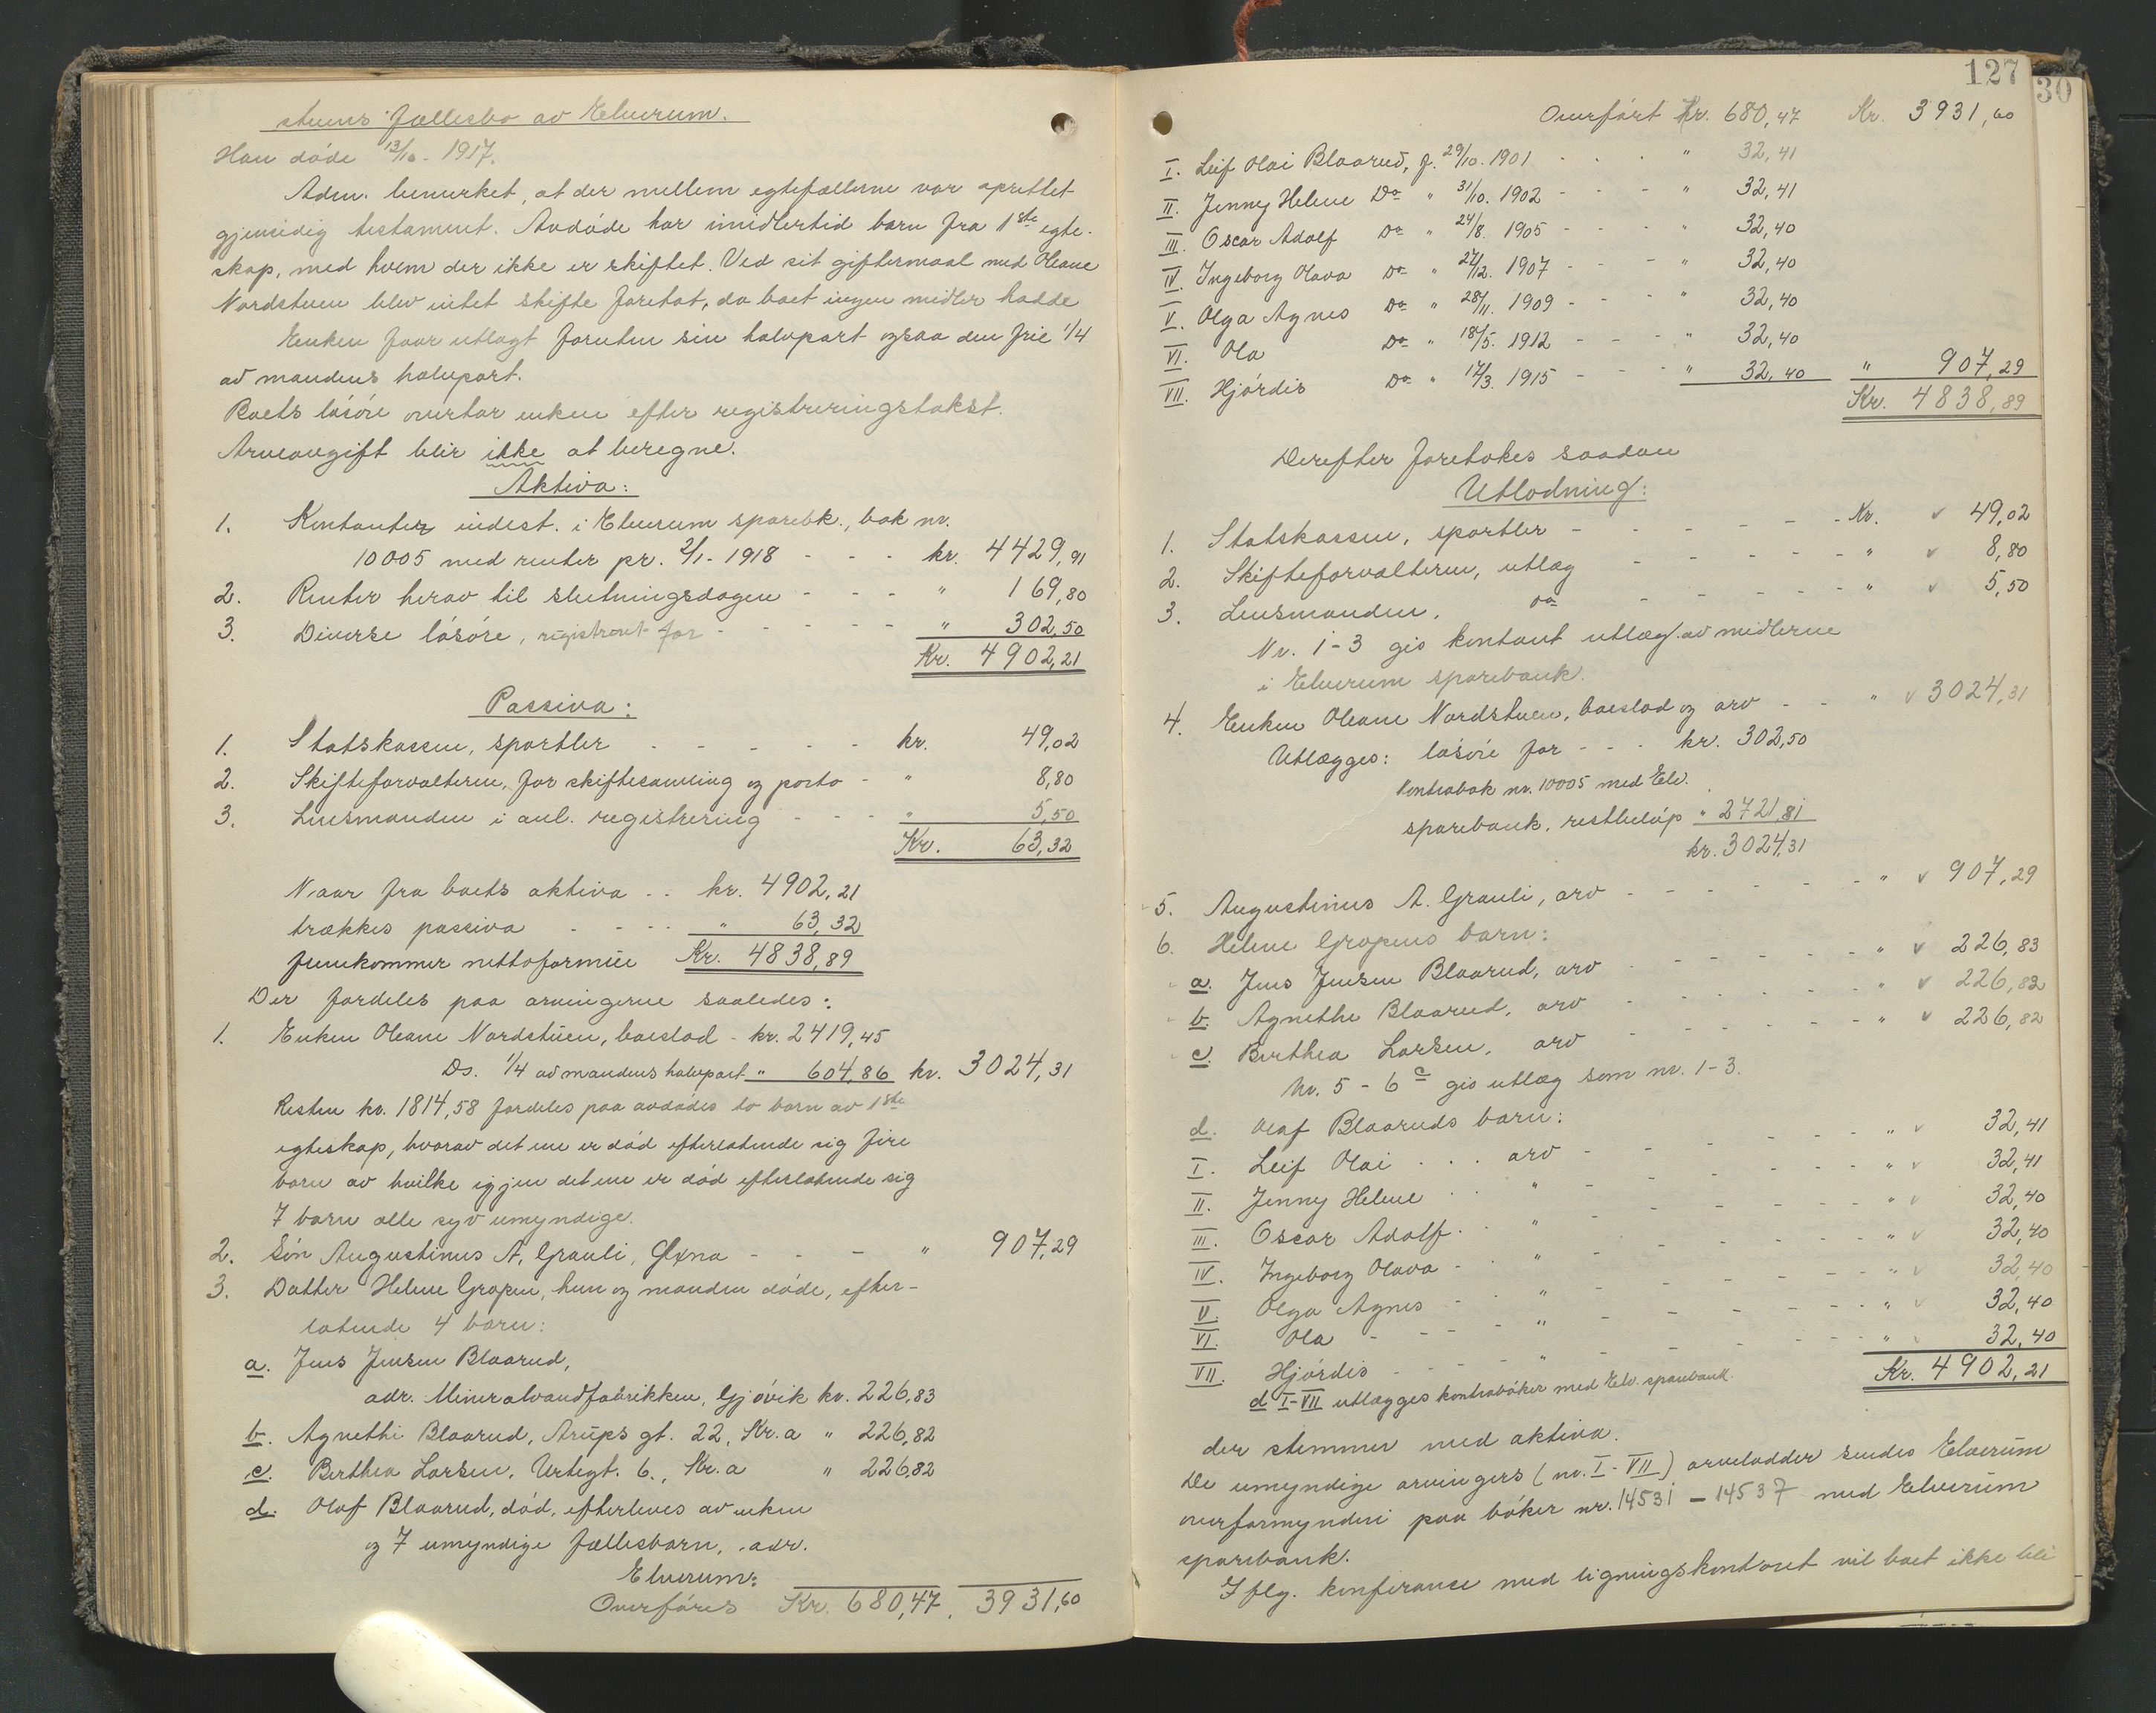 stuens fællesbo av Elverum.
Han døde 13/10 - 1917.
Adm. bemerket, at der mellem egtefællerne var oprettet
gjensidig testament. Avdøde har imidlertid barn fra 1ste egte-
skap, med hvem der ikke er skiftet. Ved sit giftermaal med Oleane
Nordstuen blev intet skifte foretat, da boet ingen midler hadde
Enken faar utlagt foruten sin halvpart ogsaa den frie 1/4
av mandens halvpart.
Boets løsøre overtar enken efter registreringstakst.
Arveavgift blir ikke at beregne.
Aktiva:
1. Kontanter indest. i Elverum sparebk., bok nr.
10005 med renter pr. 2/1 - 1918 - - - kr. 4429,91
2. Renter herav til slutningsdagen - - - " 169,80
3. Diverse løsøre, registrert for - - - - - " 302,50
Kr. 4902,21
Passiva:
1. Statskassen, sportler - - - - - kr. 49,02
2. Skifteforvalteren, for skiftesamling og porto - " 8,80
3. Lensmanden i anl. registrering - - - " 5,50
Kr. 63,32
Naar fra boets aktiva - - kr. 4902,21
trækkes passiva - - - - " 63,32
fremkommer nettoformue Kr. 4838,89
Der fordeles paa arvingerne saaledes:
1. Enken Oleane Nordstuen, boeslod - kr. 2419,45
Ds. 1/4 av mandens halvpart " 604,86 kr. 3024,31
Resten kr. 1814,58 fordeles paa avdødes to barn av 1ste
egteskap, hvorav det ene er død efterlatende sig fire
barn av hvilke igjen det ene er død efterlatende sig
7 barn alle syv umyndige.
2. Søn Augustinus A. Grauli, - - - " 907,29
3. Datter Helene Gropen, hun og manden døde, efter-
latende 4 barn:
a. Jens Jensen Blaarud,
adr. Mineralvandfabrikken, Gjøvik kr. 226,83
b. Agnethe Blaarud, Arups gt. 22, Kr.a " 226,82
c. Berthea Larsen, Urtegt. 6., Kr.a " 226,82
d. Olaf Blaarud, død, efterleves av enken
og 7 umyndige fællesbarn, adr.
Elverum:
Overføres Kr. 680,47. 3931,60
127
30
Overført Kr. 680,47 Kr. 3931,60
I. Leif Olai Blaarud, f. 29/10. 1901 - - - " 32,41
II. Jenny Helene Do " 31/10. 1902 - - - " 32,41
III. Oscar Adolf Do " 24/8. 1905 - - - " 32,40
IV. Ingeborg Olava Do " 24/12. 1907 - - - " 32,40
V. Olga Agnes Do " 28/11. 1909 - - - " 32,40
VI. Ola Do " 18/5. 1912 - - - " 32,40
VII. Hjørdis Do " 17/3. 1915 - - - " 32,40 " 907,29
Kr. 4838,89
Derefter foretokes saadan
Utlodning:
1. Statskassen, sportler - - - - - - Kr. 49,02
2. Skifteforvalteren, utlæg - - - - - " 8,80
3. Lensmanden, Do - - - - - " 5,50
Nr. 1-3 gis kontant utlæg av midlerne
i Elverum sparebank.
4. Enken Oleane Nordstuen, boeslod og arv - - " 3024,31
Utlægges: løsøre for - - - kr. 302,50
Kontrabok nr. 10005 med Elv.
sparebank, restbeløp " 2721,81
kr. 3024,31
5. Augustinus A. Grauli, arv - - - - - - " 907,29
6. Helene Gropens barn:
a. Jens Jensen Blaarud, arv - - - - - " 226,83
b. Agnethe Blaarud, arv - - - - - " 226,82
c. Berthea Larsen, arv - - - - - " 226,82
Nr. 5 - 6c gis utlæg som nr. 1-3.
d. Olaf Blaaruds barn:
I. Leif Olai . . . arv - - - - - " 32,41
II. Jenny Helene . . " - - - - - " 32,41
III. Oscar Adolf . . " - - - - - " 32,40
IV. Ingeborg Olava - . " - - - - - " 32,40
V. Olga Agnes - . " - - - - - " 32,40
VI. Ola - - - - " - - - - - " 32,40
VII. Hjørdis - - - - " - - - " 32,40
d I-VII utlægges kontrabøker med Elv. sparebank. Kr. 4902,21
der stemmer med aktiva.
De umyndige arvingers (nr. I - VII) arvelodder sendes Elverum
overformynderi paa bøker nr. 14531 - 14537 med Elverum
sparebank.
Iflg. konferance med ligningskontoret vil boet ikke bli